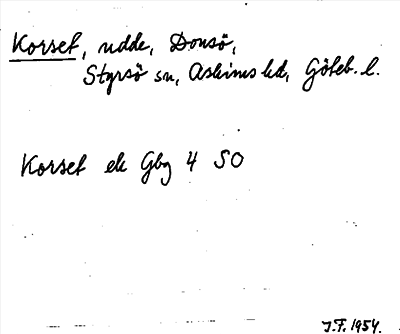 Korset, udde, Donsö,
Styrsö sn, Askims hd, Göteb. l.
Korset ek Gbg 4 SO
J.F. 1954.